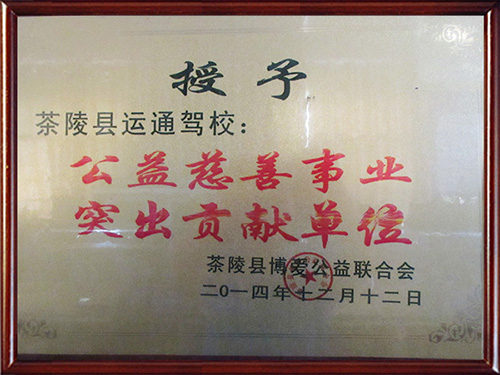 授予
茶陵县运通驾校：
公益慈善事业
突出贡献单位
茶陵县博爱公益联合会
二0一四年十二月十二日